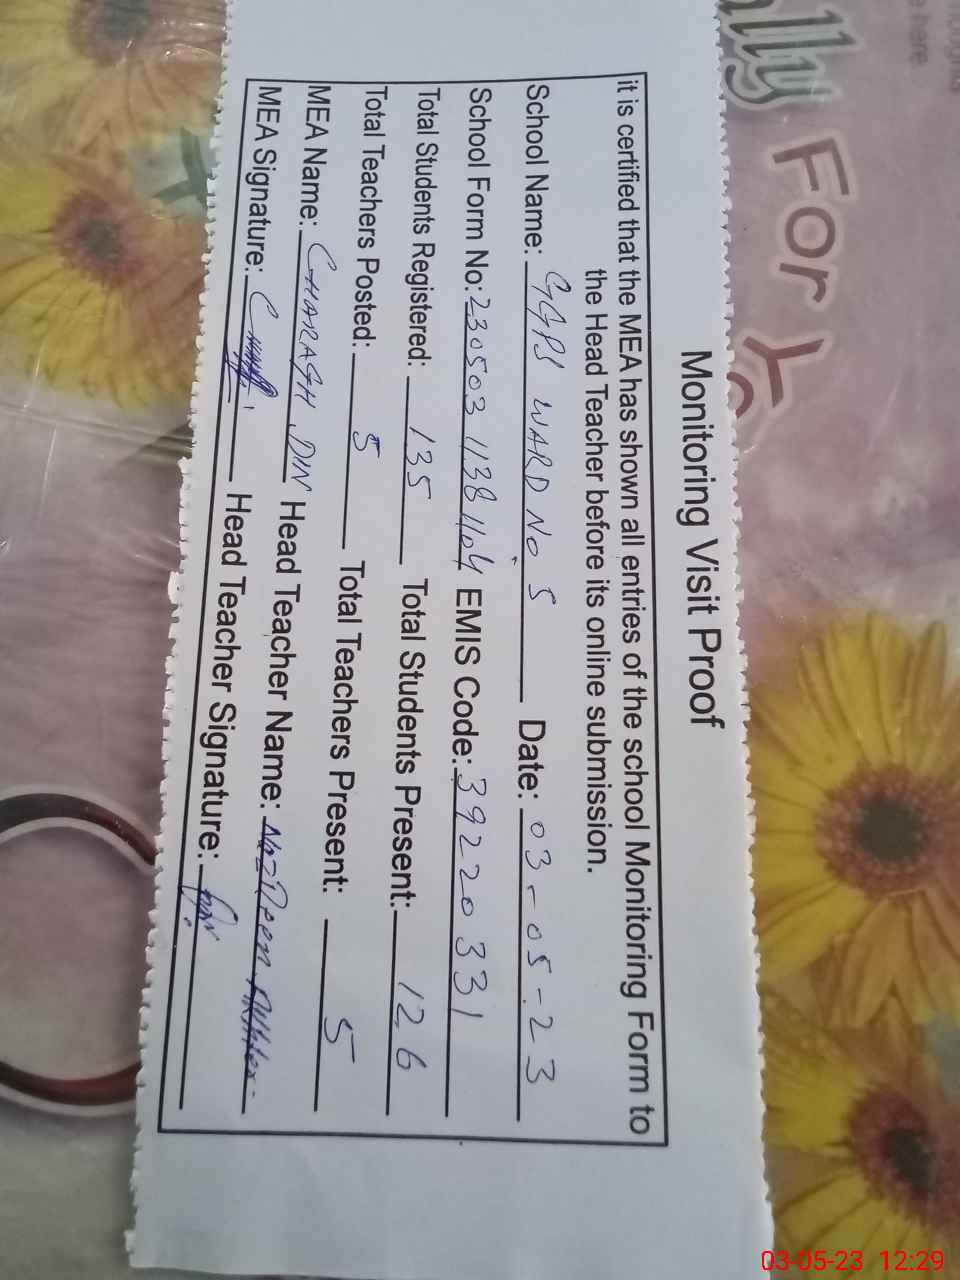 Monitoring Visit Proof
it is certified that the MEA has shown all entries of the school Monitoring Form to
the Head Teacher before its online submission.
School Name: GGPS WARD No 5 Date: 03-05-23
School Form No: 230503 1138 1104 EMIS Code: 39220331
Total Students Registered: 135 Total Students Present: 126
Total Teachers Posted: 5 Total Teachers Present: 5
MEA Name: CHARAGH DIN Head Teacher Name: Nazreen Akhter
MEA Signature: Head Teacher Signature:
For
here
03-05-23 12:29